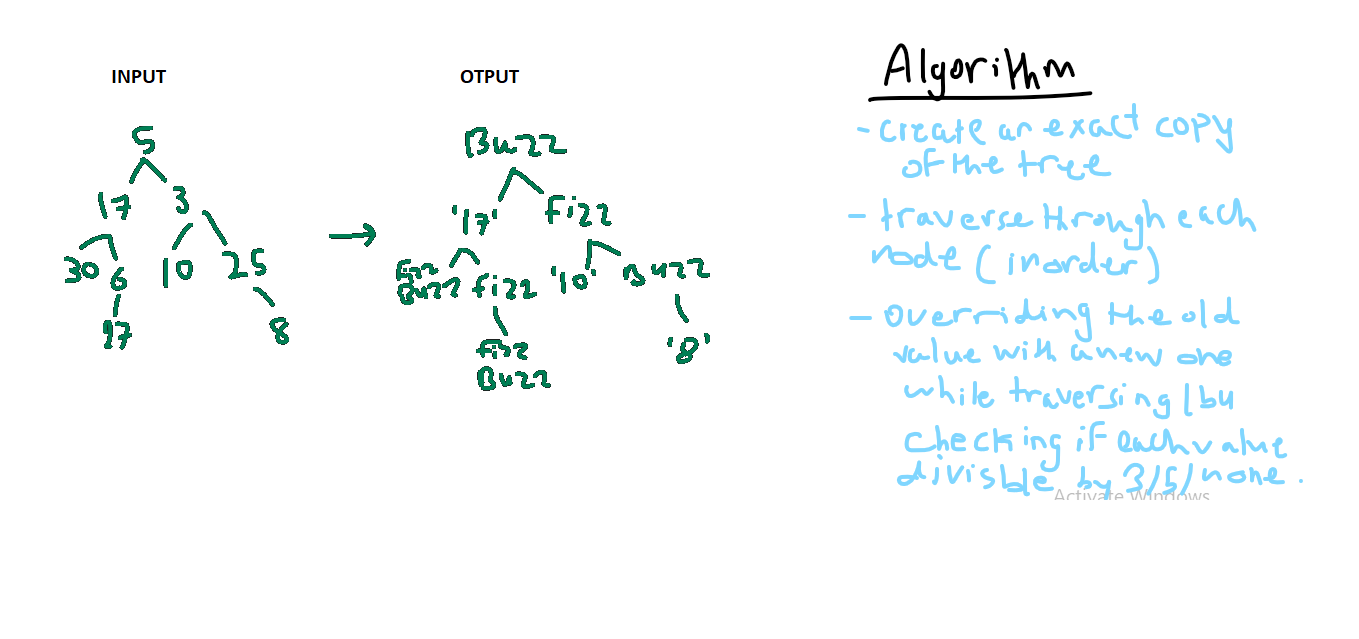 INPUT
5
17 3
30 6 10 25
97 8
OTPUT
Buzz
'17' fizz
fizz
Buzz fizz '10' Buzz
fizz
Buzz '8'
Algorithm
- create an exact copy
of the tree
- traverse through each
node (inorder)
- overriding the old
value with a new one
while traversing / by
checking if each value
divisble by 3/5/none.
Activate Windows